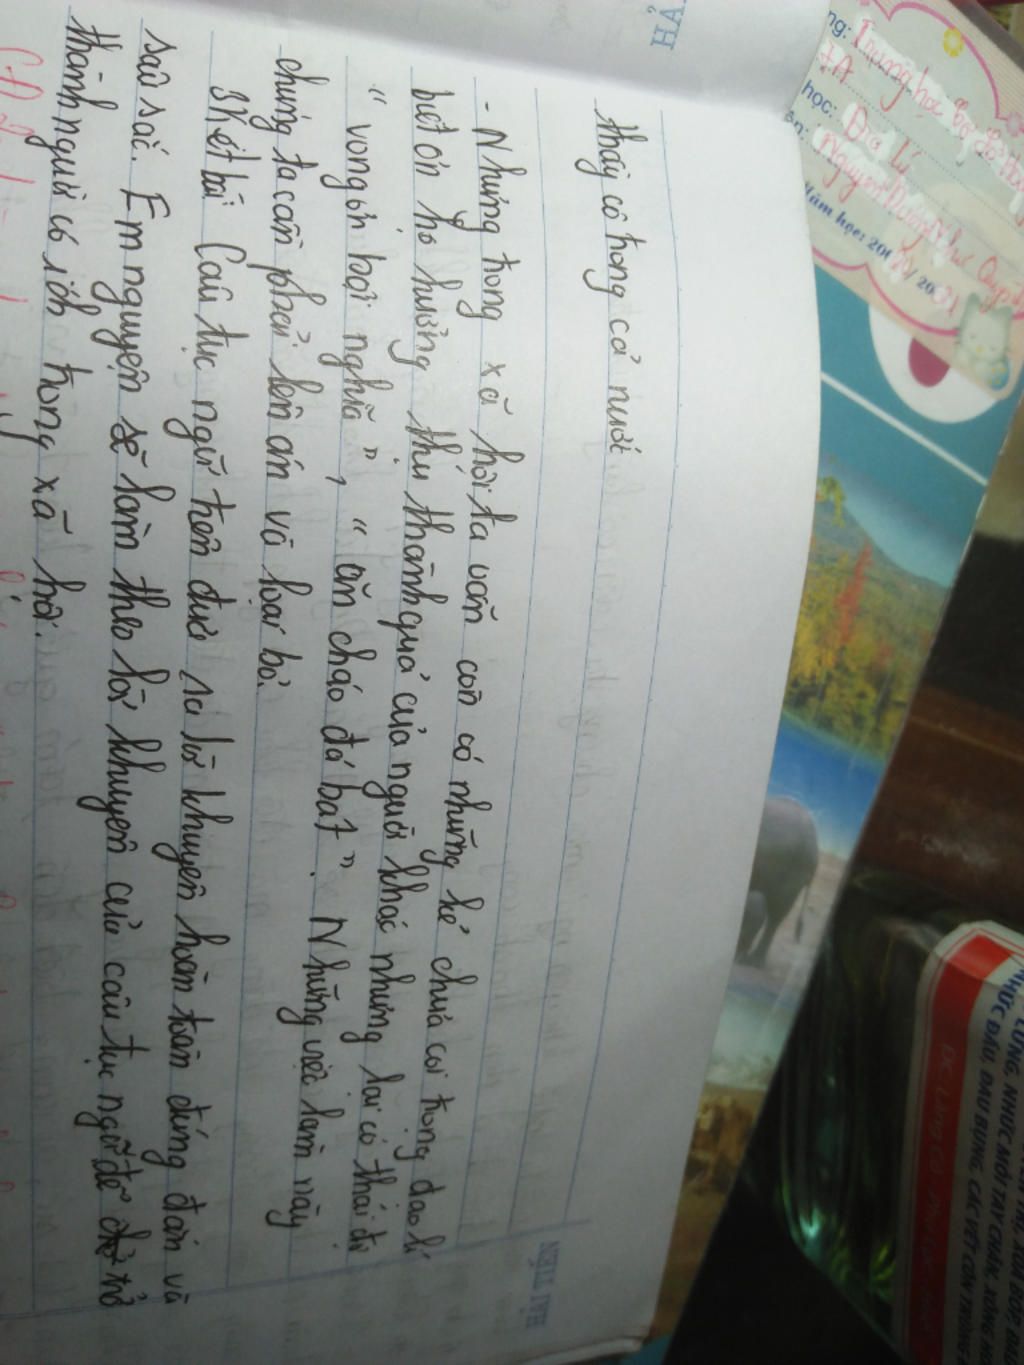 thầy cô trong cả nước
- Nhưng trong xã hội ta vẫn còn có những kẻ chưa coi trọng đạo lí
biết ơn họ hưởng thụ thành quả của người khác nhưng lại có thái độ
" vong ơn bội nghĩa ", " ăn cháo đá bát ". Những việc làm này
chúng ta cần phải lên án và loại bỏ.
3 Kết bài Câu tục ngữ trên đưa ra lời khuyên hoàn toàn đúng đắn và
sâu sắc. Em nguyện sẽ làm theo lời khuyên của câu tục ngữ để trở
thành người có ích trong xã hội.
HẠ
HẢI TIẾN
ng: Trung học
7A
học: Địa Lí
Nguyễn Như Quỳnh
Năm học: 20
LƯNG, NHỨC MỎI TAY CHÂN, XÔNG
NHỨC ĐẦU, ĐAU BỤNG, CÁC VẾT CÔN TRÙNG